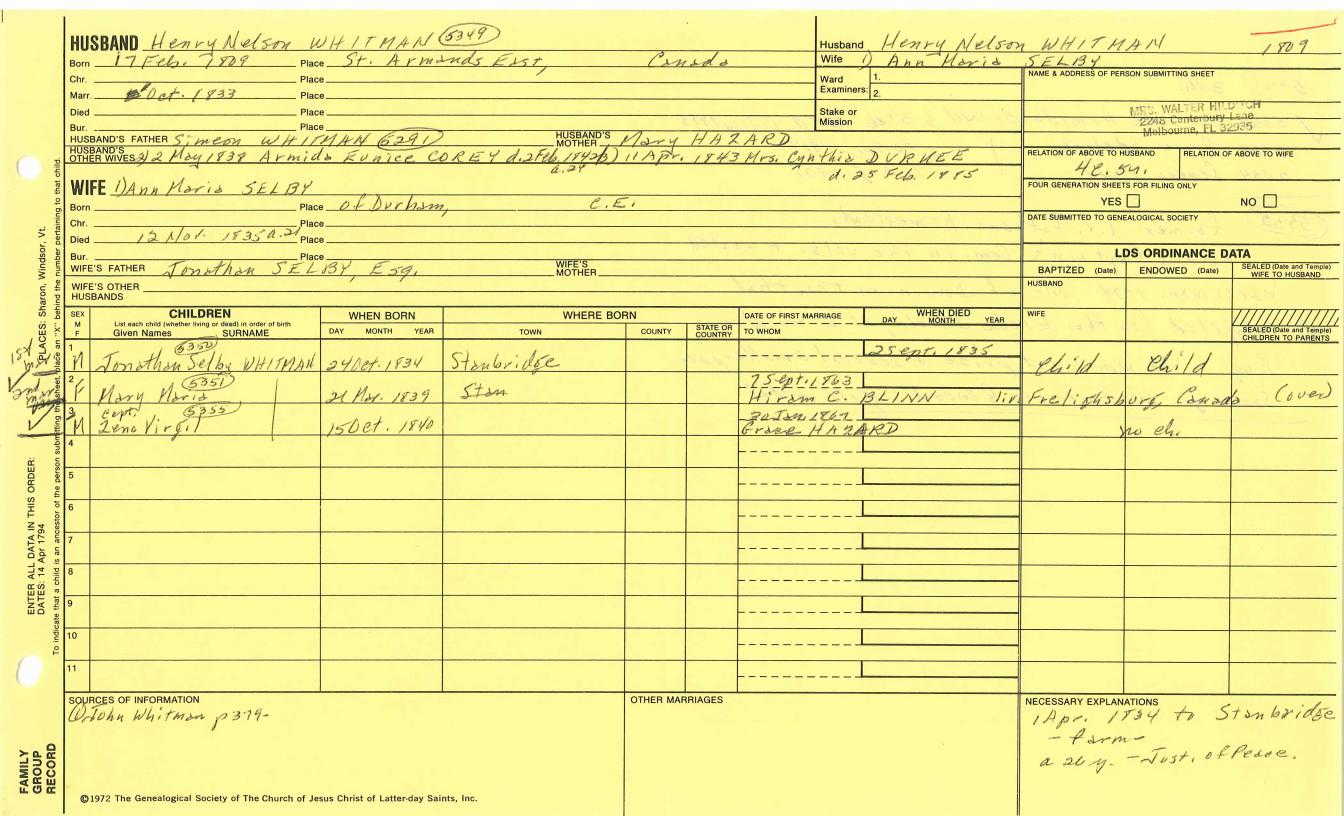 HUSBAND Henry Nelson WHITMAN 5349
Born 17 Feb. 1809 Place St. Armands East, Canada
Chr. Place
Marr. Oct. 1833 Place
Died Place
Bur. Place
HUSBAND'S FATHER Simeon WHITMAN 5291 HUSBAND'S MOTHER Mary HAZARD
HUSBAND'S OTHER WIVES 2) 2 May 1838 Armida Eunice COREY d. 2 Feb. 1842 3) 11 Apr. 1843 Mrs. Cynthia DURKEE
a. 24 d. 25 Feb. 1885
WIFE 1) Ann Maria SELBY
Born Place of Durham, C.E.
Chr. Place
Died 12 Nov. 1835 a. 21 Place
Bur. Place
WIFE'S FATHER Jonathan SELBY, Esq. WIFE'S MOTHER
WIFE'S OTHER HUSBANDS
Husband Henry Nelson WHITMAN 1809
Wife 1) Ann Maria SELBY
Ward Examiners: 1.
2.
Stake or Mission
NAME & ADDRESS OF PERSON SUBMITTING SHEET
MRS. WALTER
2248 Canterbury Lane
Melbourne, FL 32935
RELATION OF ABOVE TO HUSBAND RELATION OF ABOVE TO WIFE
4c. 5n.
FOUR GENERATION SHEETS FOR FILING ONLY
YES NO
DATE SUBMITTED TO GENEALOGICAL SOCIETY
LDS ORDINANCE DATA
BAPTIZED (Date) ENDOWED (Date) SEALED (Date and Temple) WIFE TO HUSBAND
HUSBAND
WIFE
SEALED (Date and Temple) CHILDREN TO PARENTS
SEX M F
CHILDREN
List each child (whether living or dead) in order of birth
Given Names SURNAME
WHEN BORN
DAY MONTH YEAR
WHERE BORN
TOWN COUNTY STATE OR COUNTRY
DATE OF FIRST MARRIAGE
TO WHOM
WHEN DIED
DAY MONTH YEAR
1 M Jonathan Selby WHITMAN 5350 24 Oct. 1834 Stanbridge 2 Sept. 1835 Child Child
2 F Mary Maria 5351 21 Mar. 1839 Stan 7 Sept. 1863 Hiram C. BLINN liv. Frelighsburg, Canada (over)
3 M Capt. Zeno Virgil 5355 15 Oct. 1840 30 Jan 1867 Grace HAZARD no ch.
4
5
6
7
8
9
10
11
SOURCES OF INFORMATION
① John Whitman p 379-
OTHER MARRIAGES
NECESSARY EXPLANATIONS
1 Apr. 1834 to Stanbridge
- farm -
a 26 y. - Just. of Peace.
©1972 The Genealogical Society of The Church of Jesus Christ of Latter-day Saints, Inc.
FAMILY GROUP RECORD
ENTER ALL DATA IN THIS ORDER:
DATES: 14 Apr 1794
PLACES: Sharon, Windsor, Vt.
To indicate that a child is an ancestor of the person submitting the sheet, place an "X" behind the number pertaining to that child.